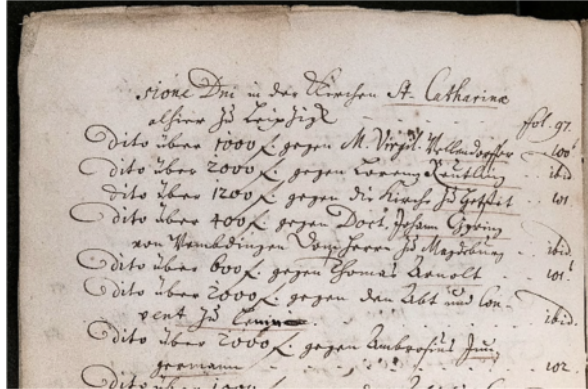 sione Dni in der Kirchen St. Catharinæ
alhier zu Leipzigk
fol. 97.
Dito über 1000 f. gegen M. Virgil. Wellendorffer 100
Dito über 2000 f. gegen Lorenz Reutling ibid
Dito über 1200 f. gegen die Kirche zu 101
Dito über 400 f. gegen Doct. Johann
von Dom Herrn zu Magdeburg ibid.
Dito über 600 f. gegen Thomas Arnolt 101
Dito über 2000 f. gegen den Abt und Con-
vent zu ibid.
Dito über 2000 f. gegen Ambrosius Jun
germann 102.
Dito über